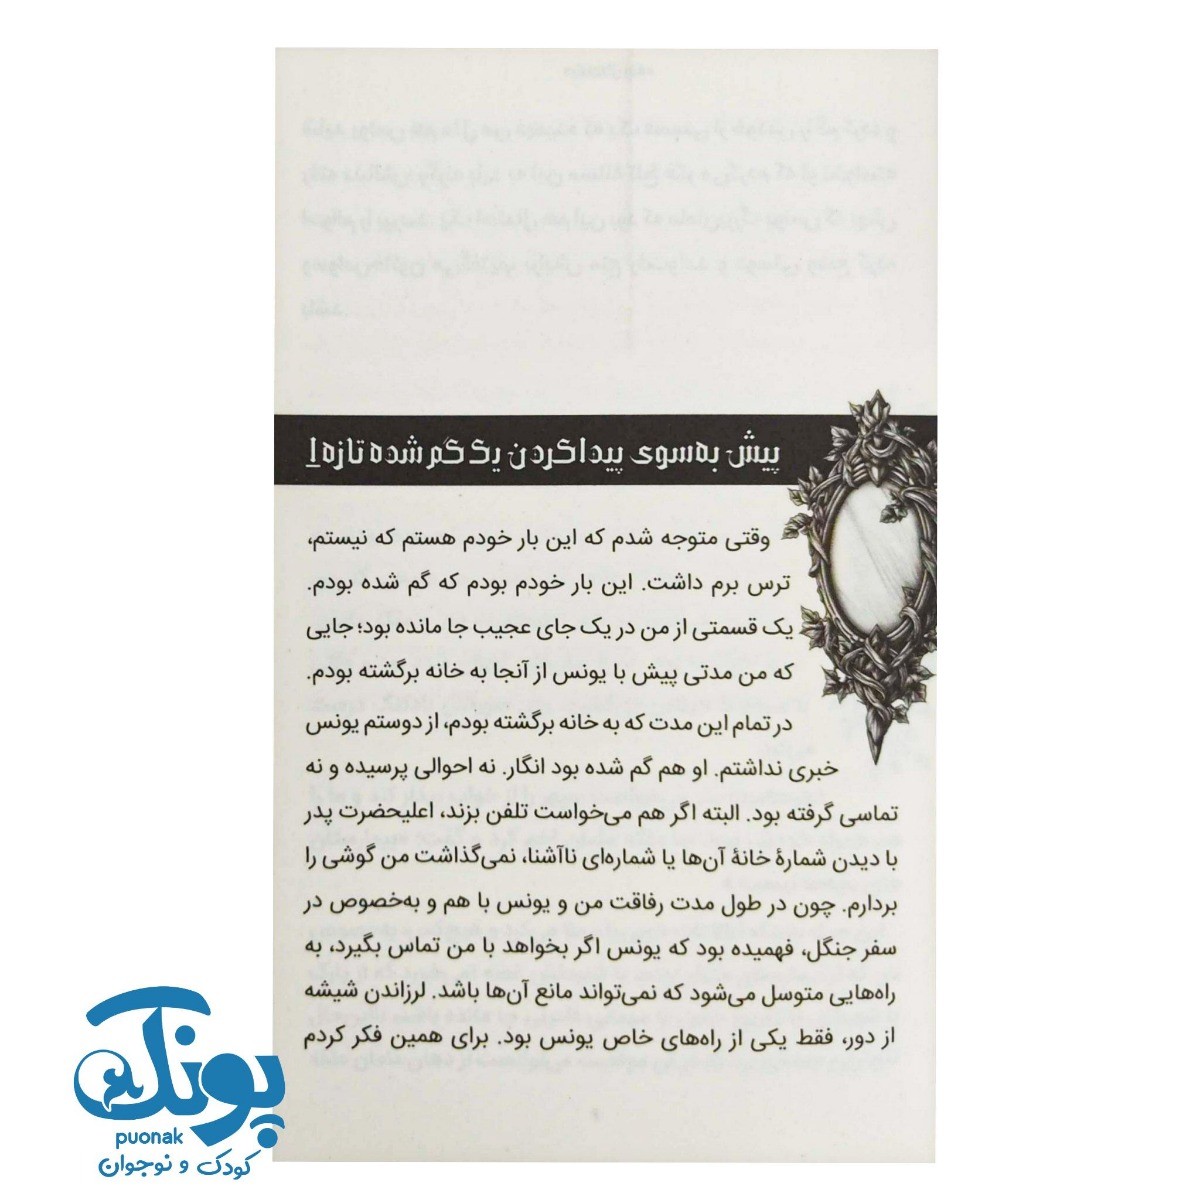 پیش به‌سوی پیدا کردن یک گم شده تازه!
وقتی متوجه شدم که این بار خودم هستم که نیستم،
ترس برم داشت. این بار خودم بودم که گم شده بودم.
یک قسمتی از من در یک جای عجیب جا مانده بود؛ جایی
که من مدتی پیش با یونس از آنجا به خانه برگشته بودم.
در تمام این مدت که به خانه برگشته بودم، از دوستم یونس
خبری نداشتم. او هم گم شده بود انگار. نه احوالی پرسیده و نه
تماسی گرفته بود. البته اگر هم می‌خواست تلفن بزند، اعلیحضرت پدر
با دیدن شمارهٔ خانهٔ آن‌ها یا شماره‌ای ناآشنا، نمی‌گذاشت من گوشی را
بردارم. چون در طول مدت رفاقت من و یونس با هم و به‌خصوص در
سفر جنگل، فهمیده بود که یونس اگر بخواهد با من تماس بگیرد، به
راه‌هایی متوسل می‌شود که نمی‌تواند مانع آن‌ها باشد. لرزاندن شیشه
از دور، فقط یکی از راه‌های خاص یونس بود. برای همین فکر کردم
پونک
puonak
کودک و نوجوان